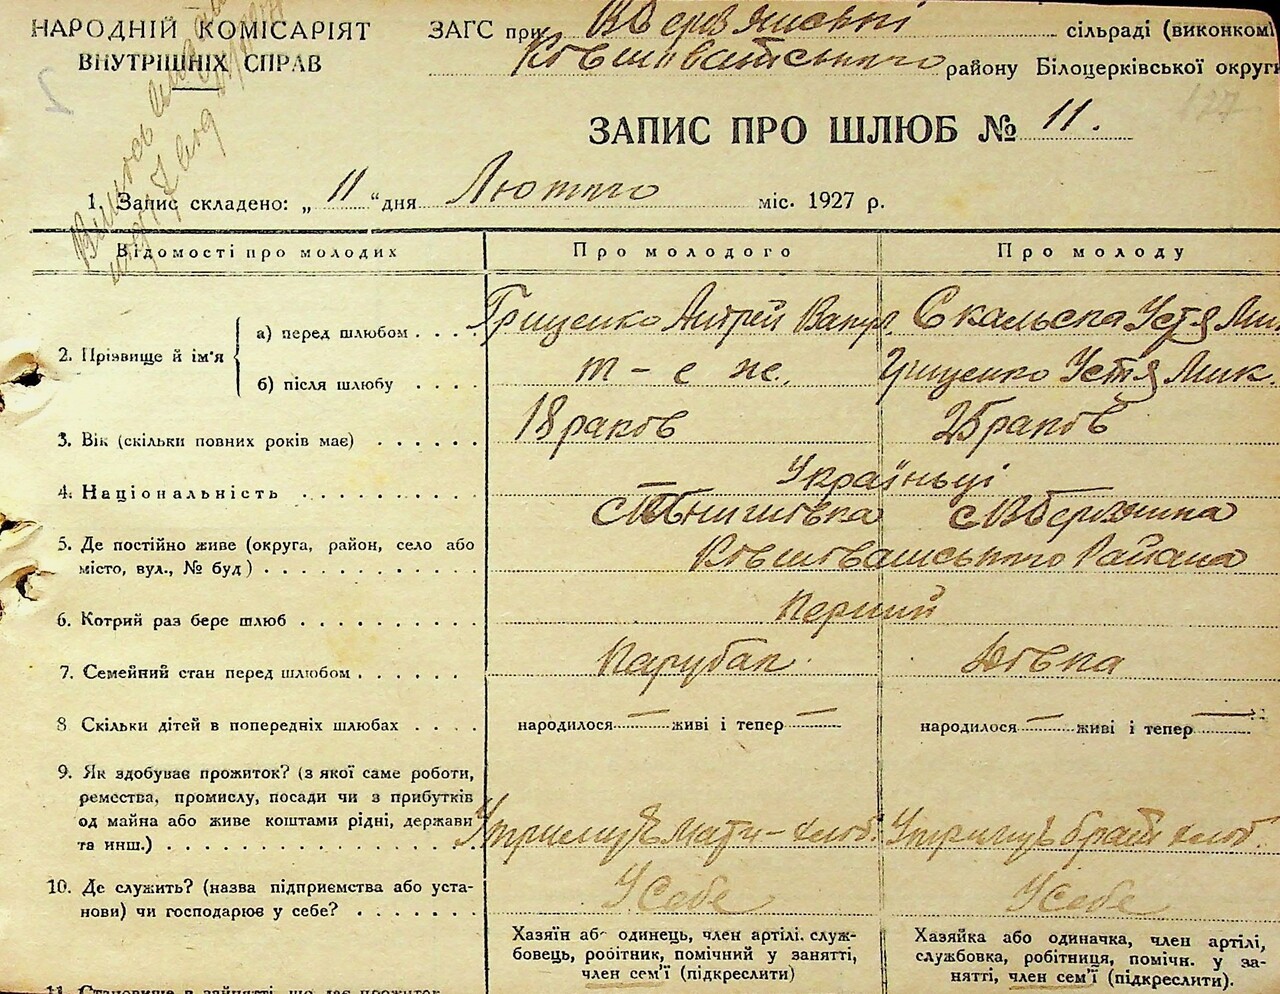 НАРОДНІЙ КОМІСАРІЯТ
ВНУТРІШНІХ СПРАВ
ЗАГС при сільраді (виконком
району Білоцерківської округи
127
ЗАПИС ПРО ШЛЮБ № 11.
1. Запис складено: „ 11 “ дня Лютого міс. 1927 р.
Відомості про молодих
Про молодого
Про молоду
2. Прізвище й ім'я
а) перед шлюбом
Грищенко Андрей Вакул
Скальска Устя Мик
б) після шлюбу
т - е ж.
Грищенко Устя Мик.
3. Вік (скільки повних років має)
18 раков
25 раков
4. Національність
Україньці
5. Де постійно живе (округа, район, село або
місто, вул., № буд)
Районa
6. Котрий раз бере шлюб
Перший
7. Семейний стан перед шлюбом
Парубак
Дівка
8 Скільки дітей в попередніх шлюбах
народилося — живі і тепер —
народилося — живі і тепер —
9. Як здобуває прожиток? (з якої саме роботи,
ремества, промислу, посади чи з прибутків
од майна або живе коштами рідні, держави
та инш.)
Утримує мати - хліб.
Утримує брат хліб.
10. Де служить? (назва підприємства або уста-
нови) чи господарює у себе?
У Себе
У Себе
Хазяїн або одинець, член артілі. служ-
бовець, робітник, помічний у занятті,
член сем'ї (підкреслити)
Хазяйка або одиначка, член артілі,
службовка, робітниця, помічн. у за-
нятті, член сем'ї (підкреслити).
11. Становище в занятті, що дає прожиток